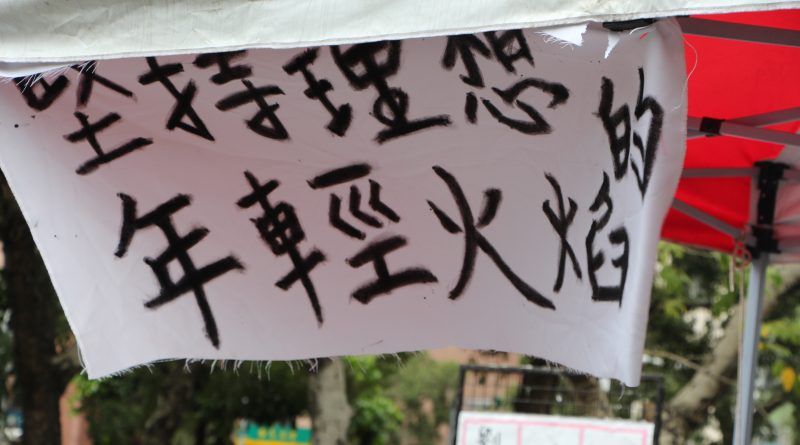 堅持理想的
年輕火焰